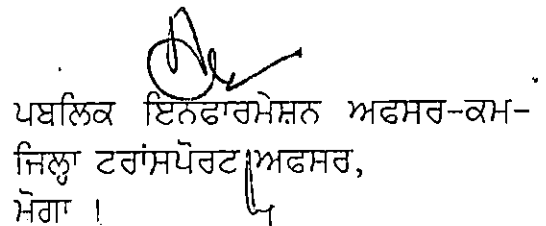 ਪਬਲਿਕ ਇਨਫਾਰਮੇਸ਼ਨ ਅਫਸਰ-ਕਮ-
ਜਿਲ੍ਹਾ ਟਰਾਂਸਪੋਰਟ ਅਫਸਰ,
ਮੋਗਾ ।